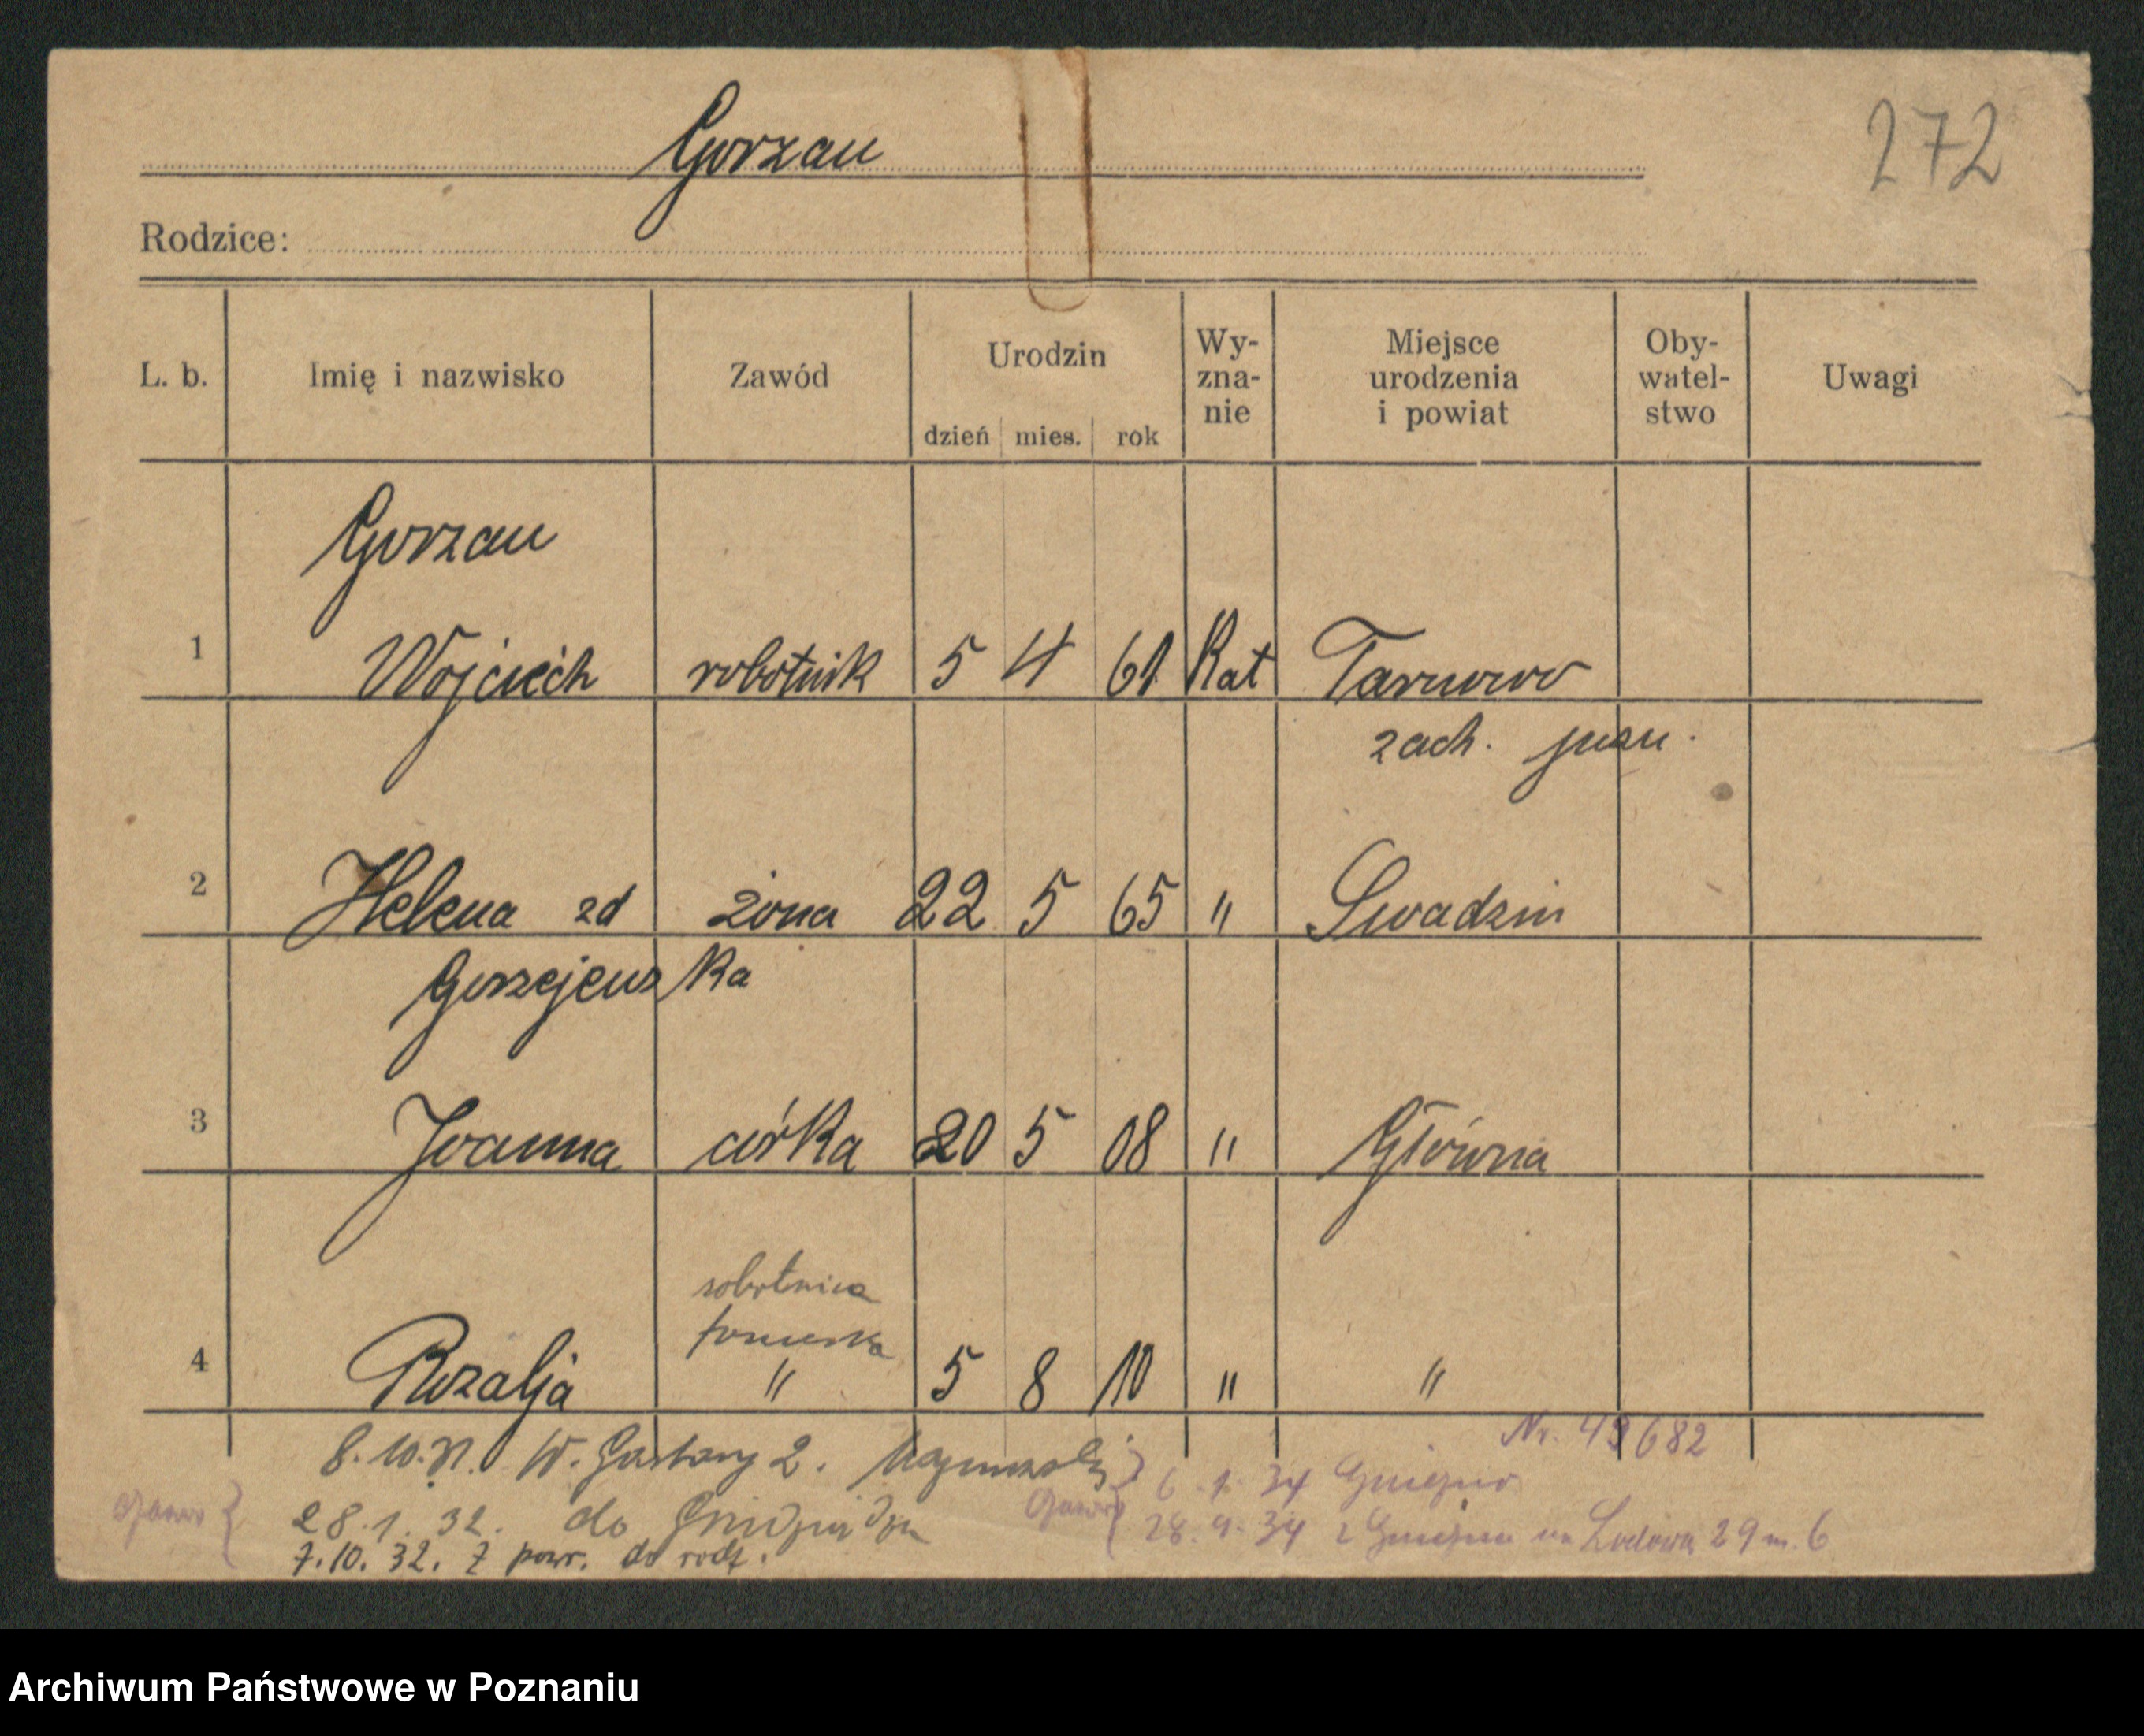 Gorzan
272
Rodzice:
L. b. Imię i nazwisko Zawód Urodzin dzień mies. rok Wy-zna-nie Miejsce urodzenia i powiat Oby-watel-stwo Uwagi
Gorzan
1 Wojciech robotnik 5 4 61 Kat Tarnowo
zach. pozn.
2 Helena zd żona 22 5 65 " Swadzin
Gorzejewska
3 Joanna córka 20 5 08 " Główna
robotnica
4 Rozalja " 5 8 10 " "
Nr. 49682
8.10.31. W. Garbary 2.
6.1.34 Gniezno
28.1.32. do
28.9.34 z Gniezna 29 m. 6
7.10.32. z powr. do rodz.
Archiwum Państwowe w Poznaniu